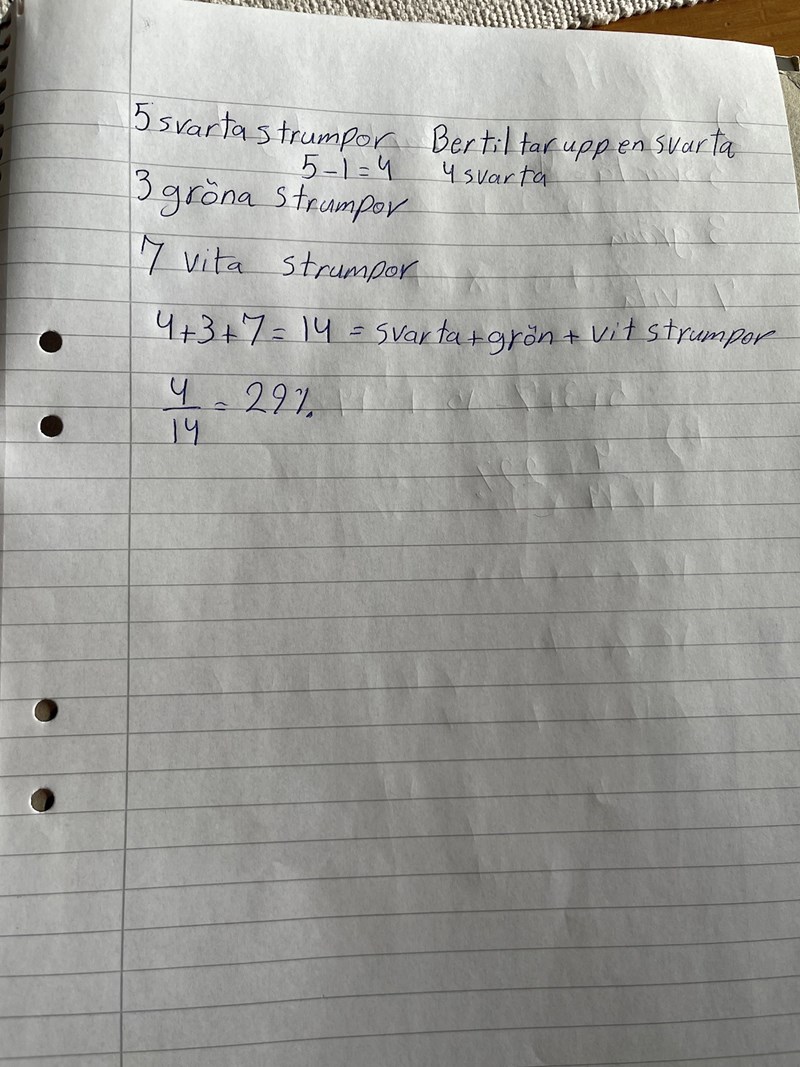 5 svarta strumpor Bertil tar upp en svarta
5-1=4 4 svarta
3 gröna strumpor
7 vita strumpor
4+3+7=14 = svarta+grön+vit strumpor
4/14 = 29%